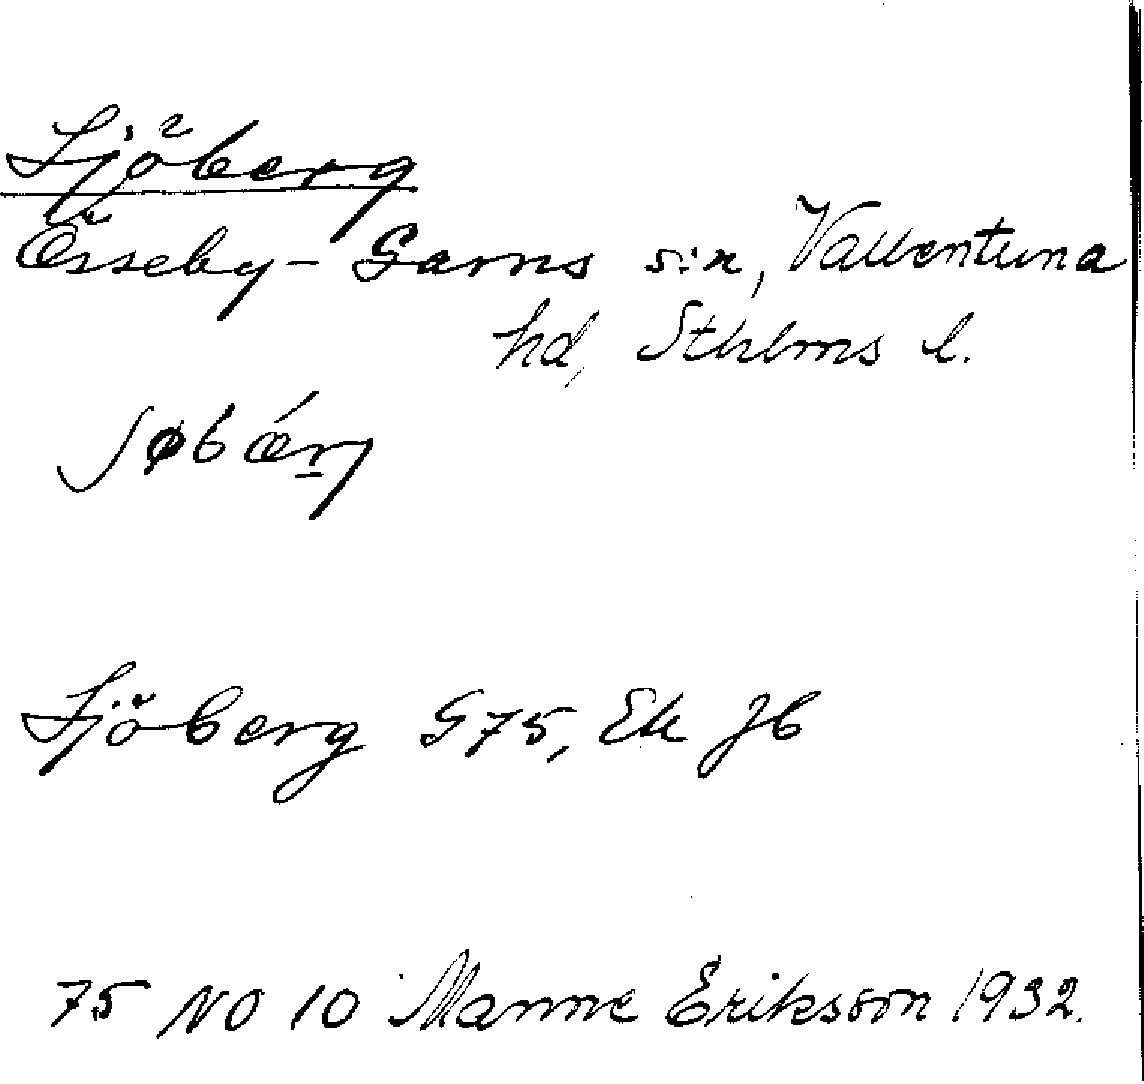 Sjöberg
Össeby-Garns sn, Vallentuna
hd, Sthlms l.
Sjöberg G75, Ek Jb
75 NO 10 Manne Eriksson 1932.